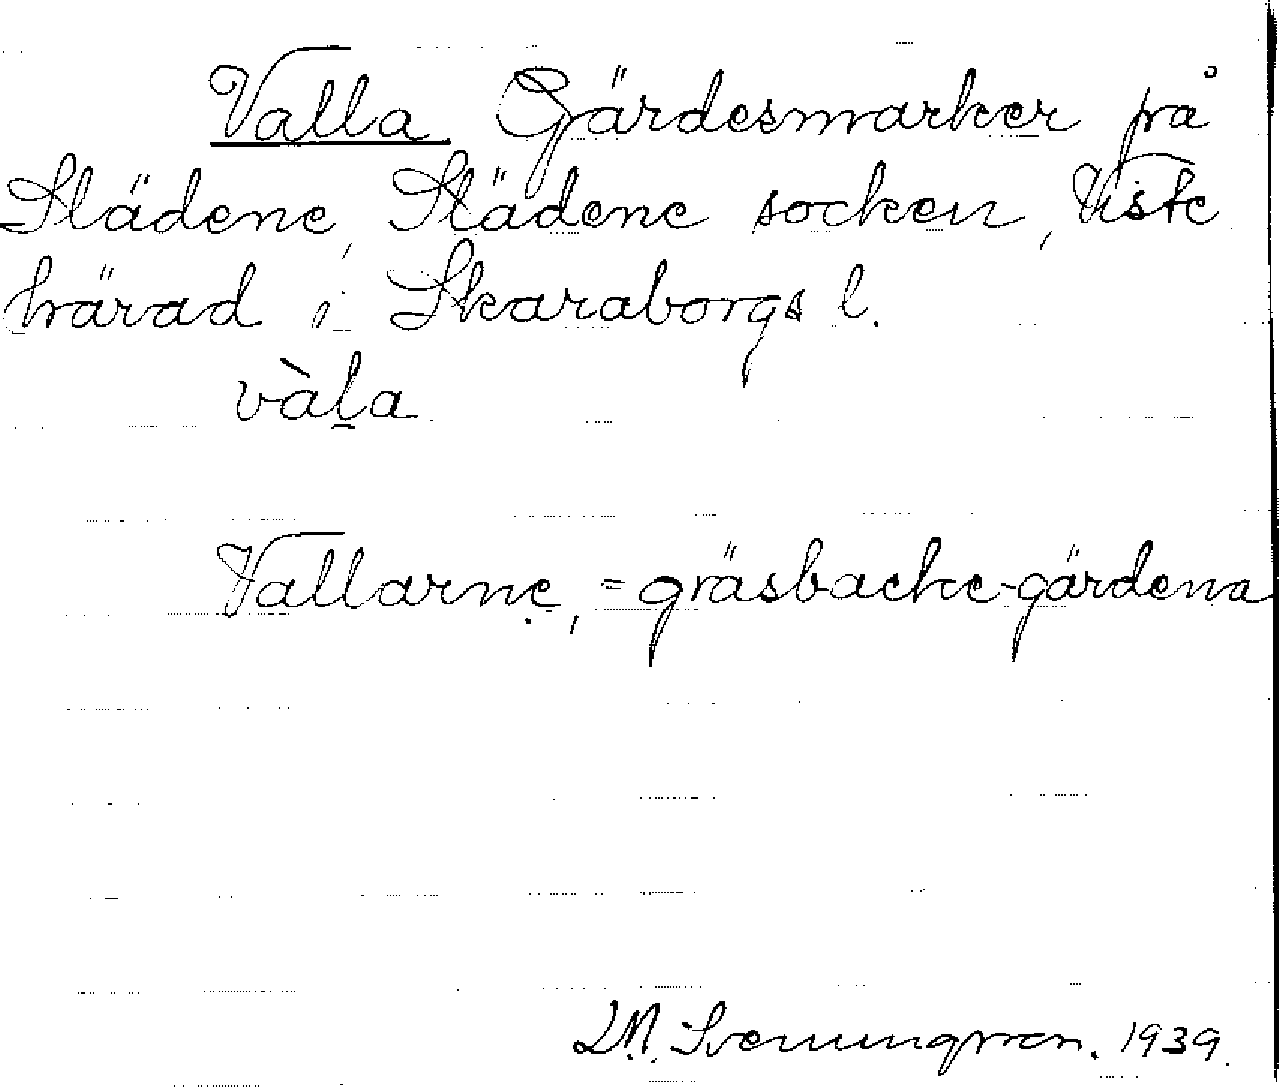 Valla Gärdesmarker på
Slädene, Slädene socken, Viste
härad i Skaraborgs l.
vàl̠a
Vallarnẹ, = gräsbacke-gärdena
Svenungsson. 1939.